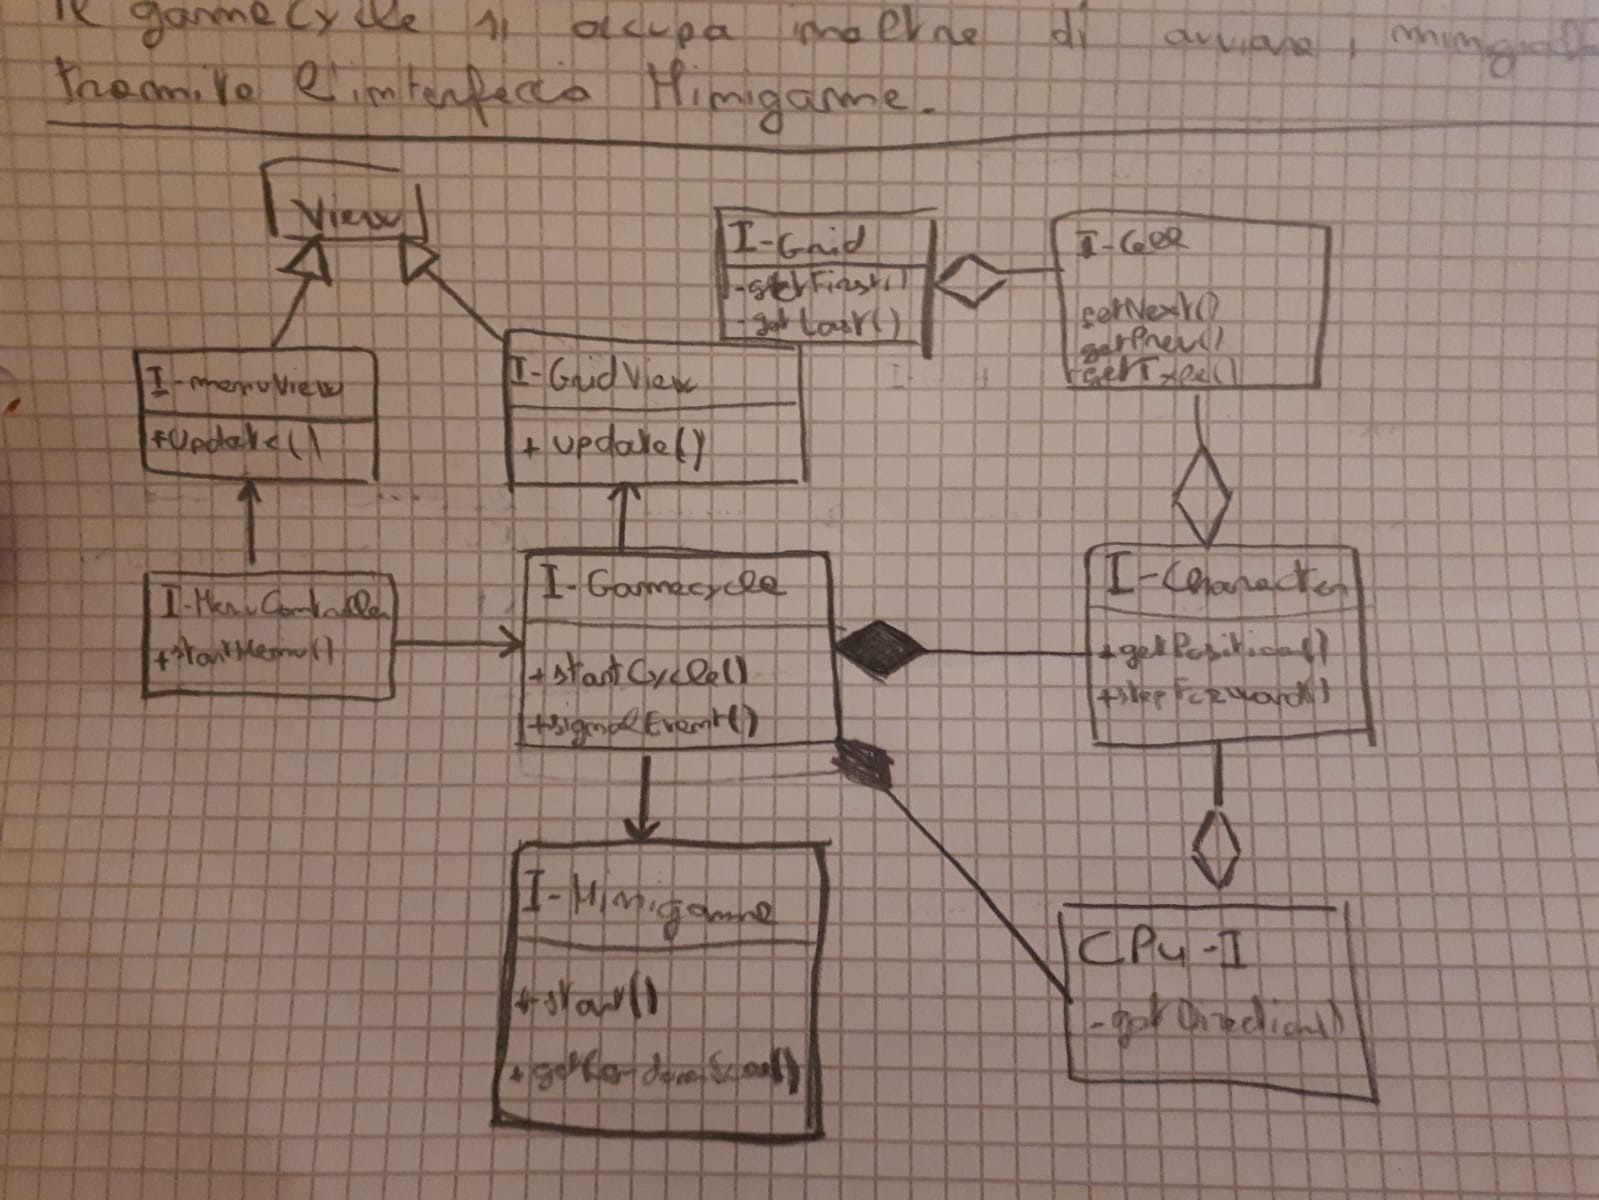 Il gameCycle si occupa inoltre di avviare i
tramite l'interfaccia Minigame.
View
I-Grid
-getFirst()
-getLast()
I-Cell
getNext()
getPrev()
getType()
I-menuView
+Update()
I-GridView
+ update()
I-MenuController
+startMenu()
I-Gamecycle
+startCycle()
+signalEvent()
I-Character
+getPosition()
+stepForward()
I-Minigame
+start()
CPU-I
-getDirection()